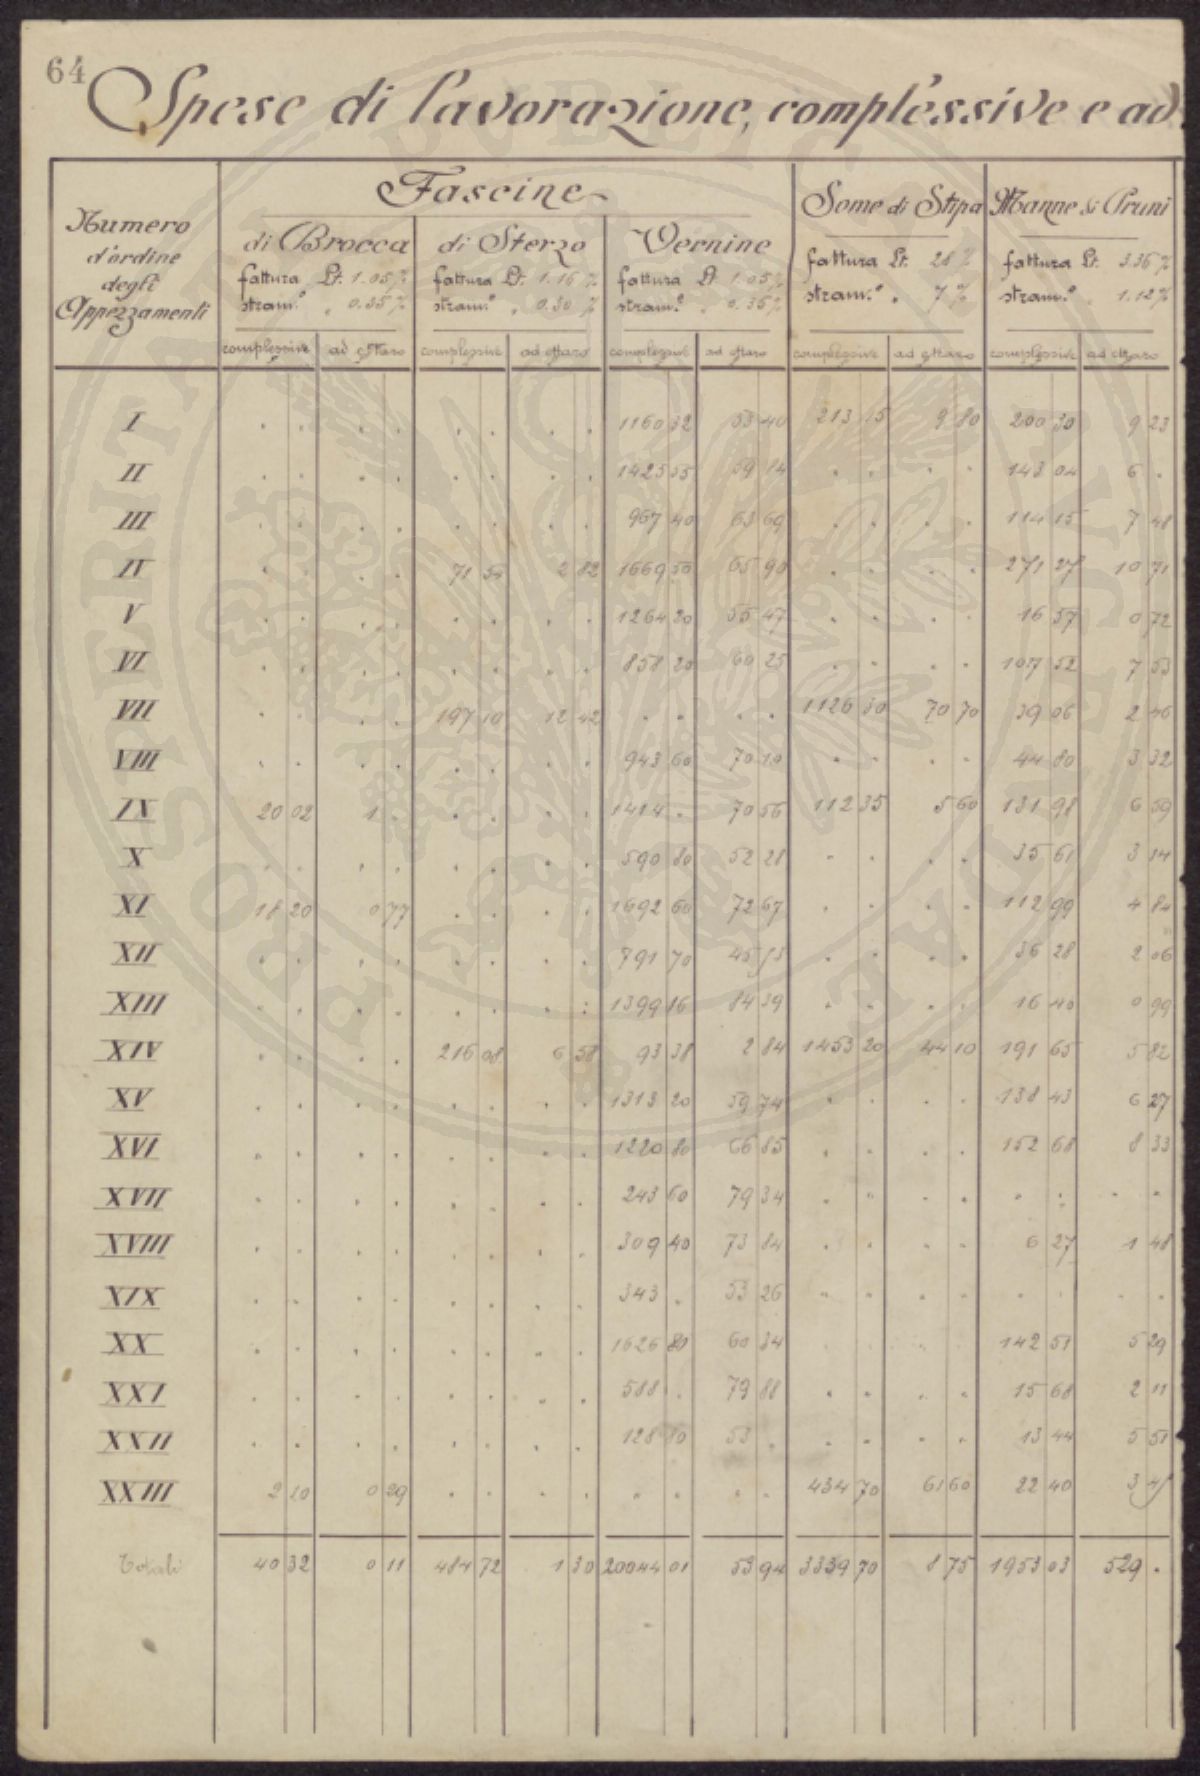 64
Spese di lavorazione, complessive e ad
Numero d'ordine degli Appezzamenti
Fascine
di Brocca
fattura Lt. 1.05 %
stram.º " 0.35 %
di Sterzo
fattura Lt. 1.16 %
stram.º " 0.30 %
Vernine
fattura Lt. 1.05 %
stram.º " 0.35 %
Some di Stipa
fattura Lt. 28 %
stram.º " 7 %
Manne di Pruni
fattura Lt. 3.36 %
stram.º " 1.12 %
complessive ad ettaro complessive ad ettaro complessive ad ettaro complessive ad ettaro complessive ad ettaro
I . . . . . . . . 1160 32 53 40 213 15 9 80 200 30 9 23
II . . . . . . . . 1425 55 59 84 . . . . 143 04 6 .
III . . . . . . . . 967 40 63 69 . . . . 114 15 7 48
IV . . . . 71 54 2 82 1669 50 65 90 . . . . 271 27 10 71
V . . . . . . . . 1264 20 55 47 . . . . 16 57 0 72
VI . . . . . . . . 858 20 60 25 . . . . 107 52 7 53
VII . . . . 197 10 12 42 . . . . 1126 30 70 70 39 06 2 46
VIII . . . . . . . . 943 60 70 10 . . . . 44 80 3 32
IX 20 02 1 . . . . . 1414 . 70 56 112 35 5 60 131 98 6 59
X . . . . . . . . 590 80 52 28 . . . . 35 61 3 14
XI 18 20 0 77 . . . . 1692 60 72 67 . . . . 112 99 4 84
XII . . . . . . . . 791 70 45 . . . . 36 28 2 06
XIII . . . . . . . . 1399 16 84 39 . . . . 16 40 0 99
XIV . . . . 216 08 6 58 93 38 2 84 1453 20 44 10 191 65 5 82
XV . . . . . . . . 1313 20 59 74 . . . . 138 43 6 27
XVI . . . . . . . . 1220 80 66 85 . . . . 152 68 8 33
XVII . . . . . . . . 243 60 79 34 . . . . . . . .
XVIII . . . . . . . . 309 40 73 84 . . . . 6 27 1 48
XIX . . . . . . . . 343 . 53 26 . . . . . . . .
XX . . . . . . . . 1626 80 60 34 . . . . 142 51 5 29
XXI . . . . . . . . 588 . 79 88 . . . . 15 68 2 11
XXII . . . . . . . . 128 80 53 . . . . . 13 44 5 51
XXIII 2 10 0 29 . . . . . . . . 434 70 61 60 22 40 3
Totali 40 32 0 11 484 72 1 30 20044 01 53 94 3339 70 8 75 1953 03 529 .
PVBLICAE
PROSPERITATI